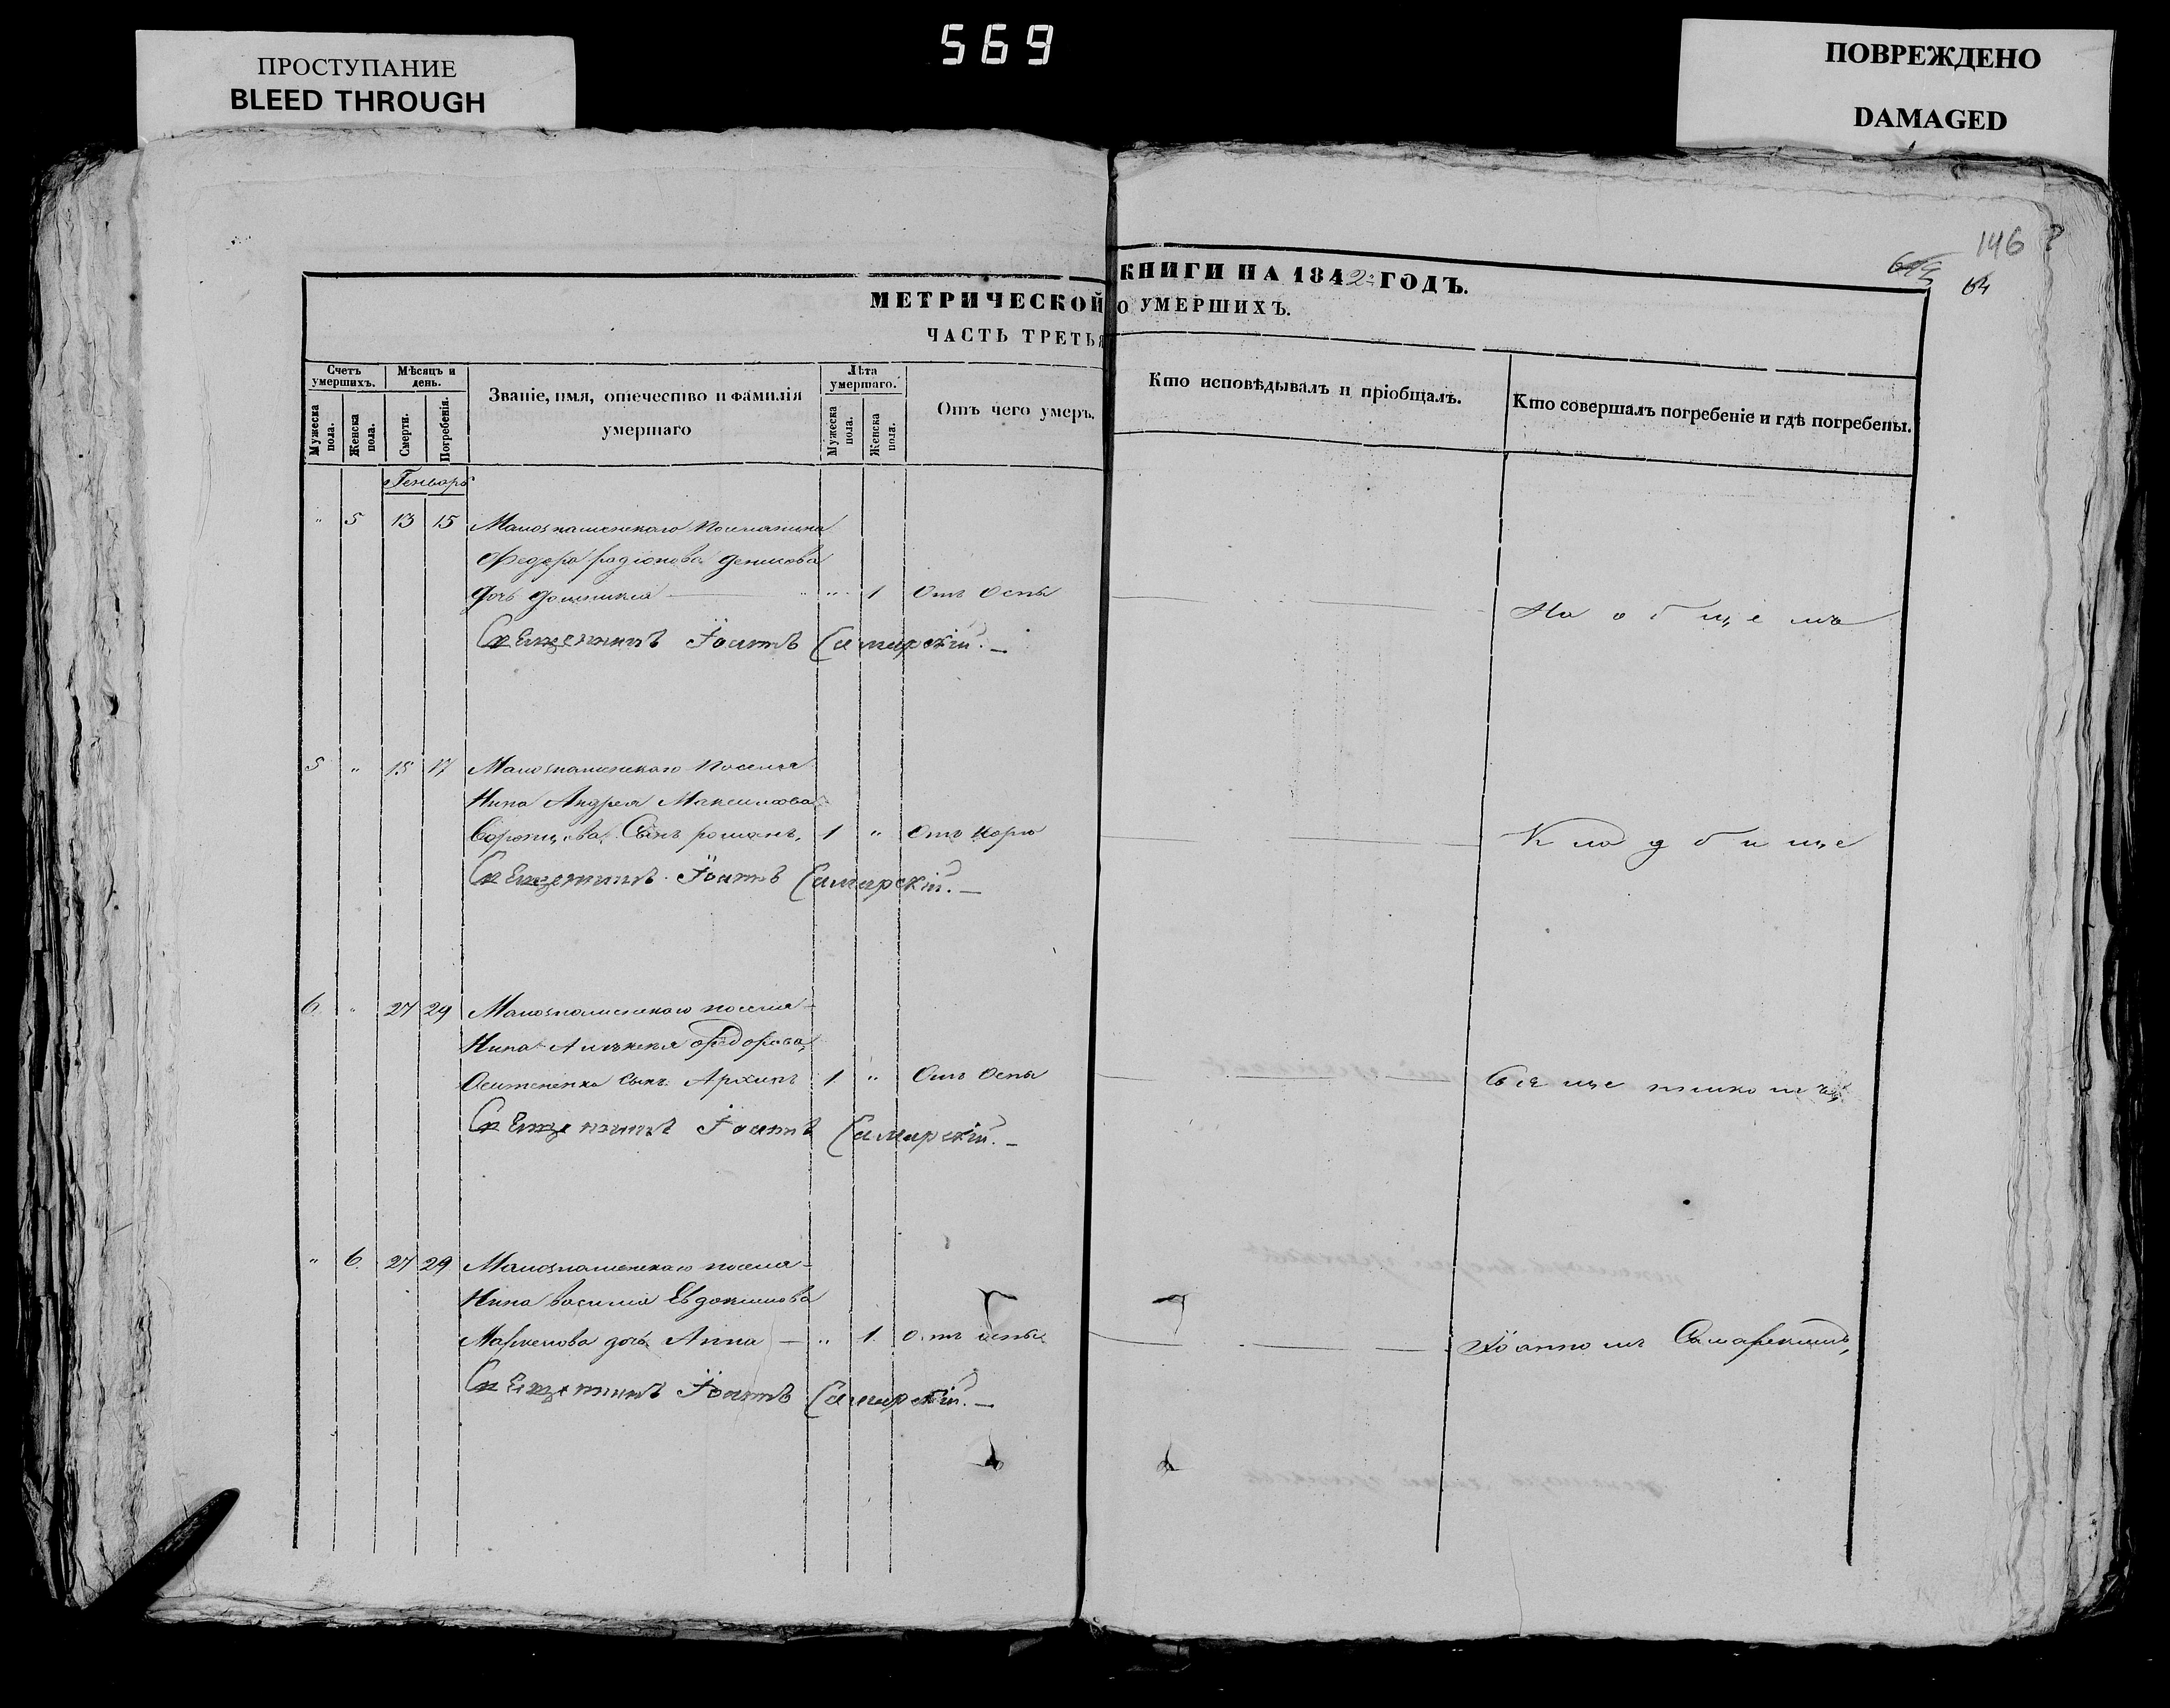 569
ПРОСТУПАНИЕ
BLEED THROUGH
ПОВРЕЖДЕНО
DAMAGED
146
64
МЕТРИЧЕСКОЙ КНИГИ НА 1842 ГОДЪ.
ЧАСТЬ ТРЕТЬЯ О УМЕРШИХЪ.
Счетъ умершихъ.
Мужеска пола.
Женска пола.
Мѣсяцъ и день.
Смерти.
Погребенія.
Званіе, имя, отечество и фамилія
умершаго
Лѣта умершаго.
Мужеска пола.
Женска пола.
Отъ чего умеръ.
Кто исповѣдывалъ и пріобщалъ.
Кто совершалъ погребеніе и гдѣ погребены.
Генварь
" 5 13 15 Малознаменскаго Поселянина
Федора радіонова денисова
дочь домникия " 1 Отъ Оспы
На общемъ
Священникъ Іоаннъ Самарскій.
5 " 15 17 Малознаменскаго Поселя
Нина Андрея Максимова
Сынъ романъ, 1 " Отъ Корю
Кладбище
Священникъ Іоаннъ Самарскій.
6 " 27 29 Малознаменскаго поселя-
Нина Алексея Федорова,
Сынъ Архипъ 1 " Отъ Оспы
Священникомъ
Священникъ Іоаннъ Самарскій.
" 6 27 29 Малознаменскаго поселя-
Нина василия Евдокимова
дочь Анна " 1 отъ оспы
Іоанномъ Самарскимъ,
Священникъ Іоаннъ Самарскій.